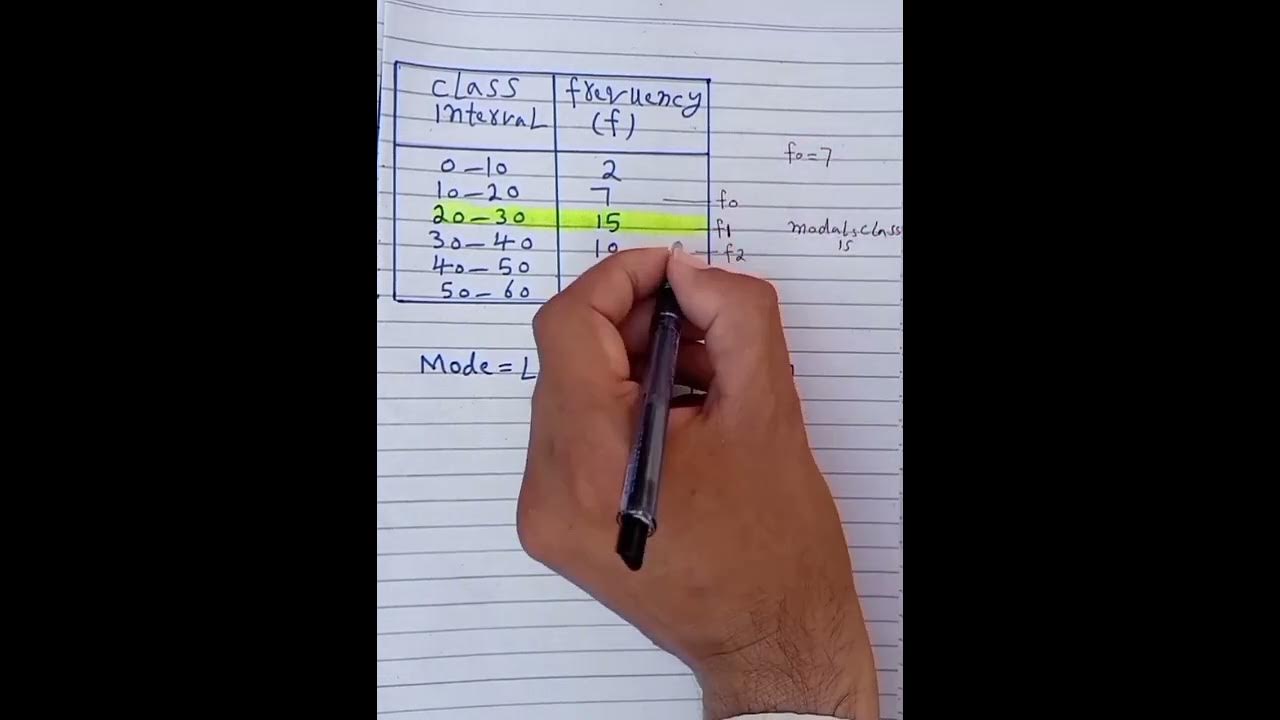 class
Interval
frequency
(f)
0-10 2
10-20 7 f0
20-30 15 f1
30-40 10 f2
40-50
50-60
f0=7
modal class
is
Mode = L